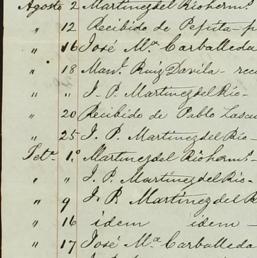 Agosto 2 Martinez del Rio herm.s
" 12 Recibido de Pepita
" 16 José M.a Carballeda
" 18 Man.l Ruiz Davila rec
" " J. P. Martinez del Rio-
" 20 Recibido de Pablo
" 25 J. P. Martinez del Rio-
Set.e 1.o Martinez del Rio herm.s-
" " J. P. Martinez del Rio-
" 9 J. P. Martinez del R
" 16 idem idem -
" 17 José M.a Carballeda